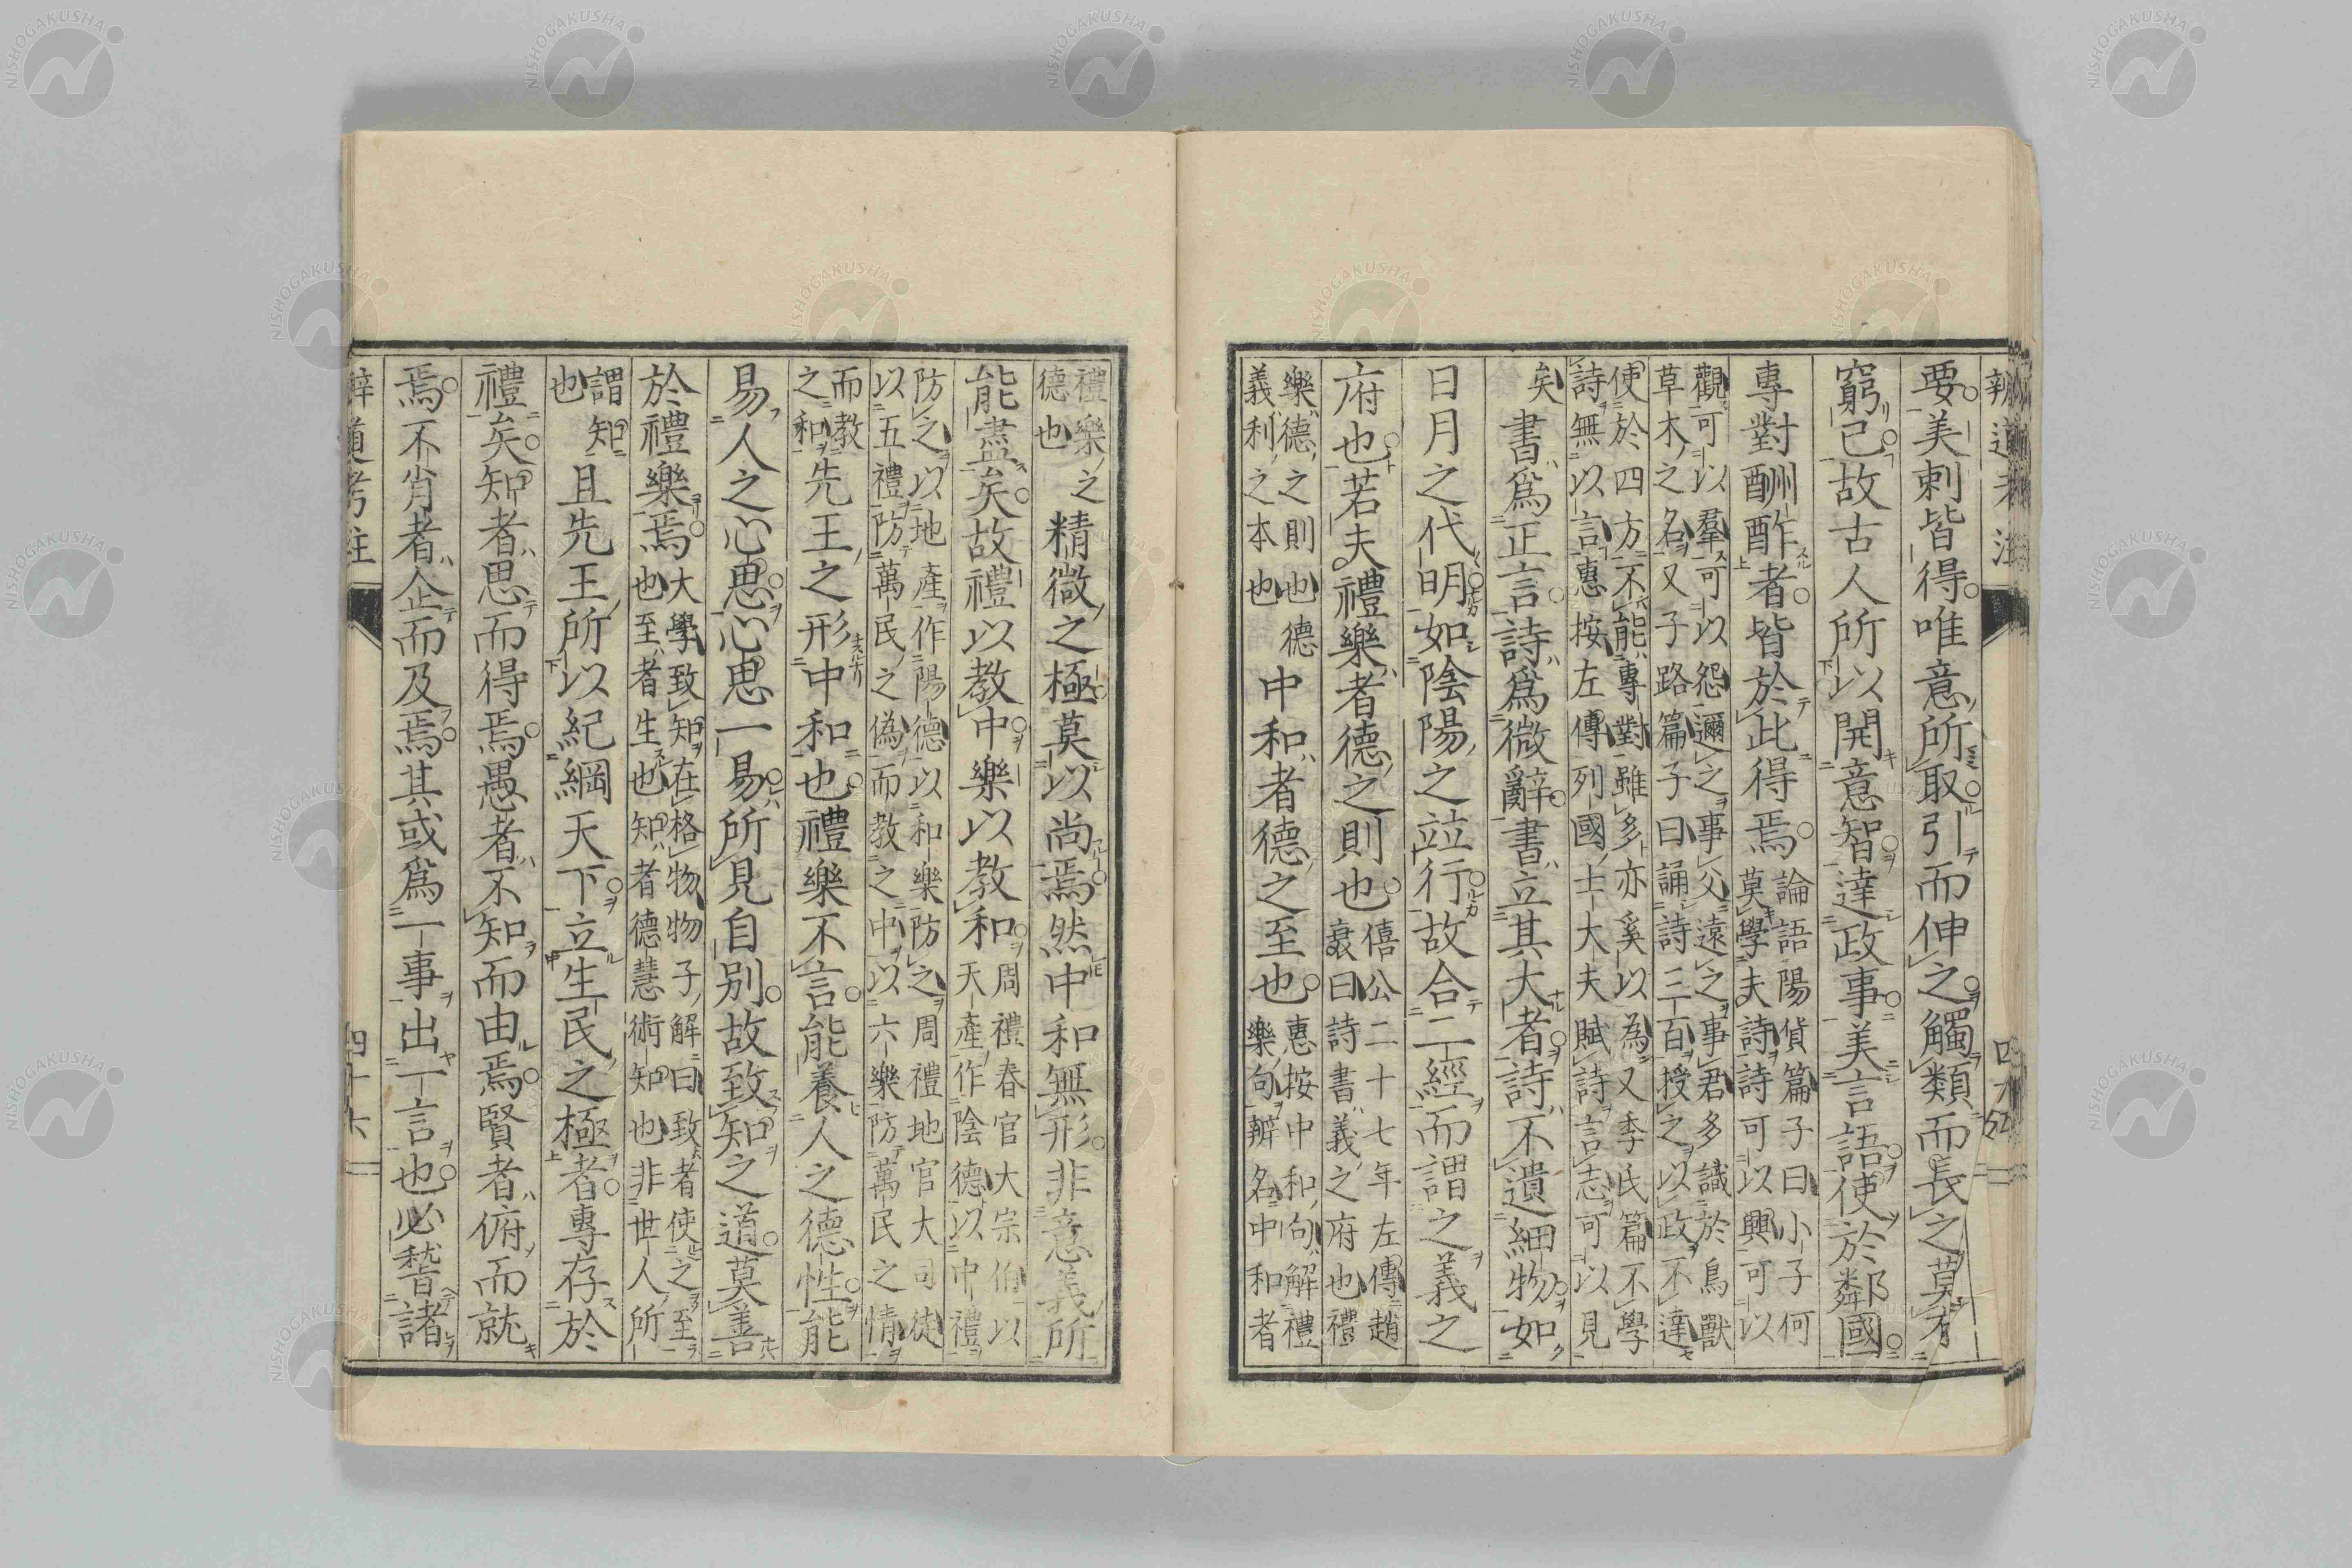 要美刺皆得唯意所取引而伸之觸類而長之莫有
窮已故古人所以開意智達政事美言語使於鄰國
專對酬酢者皆於此得焉
論語陽貨篇子曰小子何
莫學夫詩詩可以興可以
觀可以羣可以怨邇之事父遠之事君多識於鳥獸
草木之名又子路篇子曰誦詩三百授之以政不達
使於四方不能專對雖多亦奚以為又季氏篇不學
詩無以言惠按左傳列國士大夫賦詩言志可以見
矣
書爲正言詩爲微辭書立其大者詩不遺細物如
日月之代明如陰陽之竝行故合二經而謂之義之
府也若夫禮樂者德之則也
僖公二十七年左傳趙
衰曰詩書義之府也禮
樂德之則也德
義利之本也
中和者德之至也
惠按中和句解禮
樂句辨名中和者
禮樂之
德也
精微之極莫以尚焉然中和無形非意義所
能盡矣故禮以教中樂以教和
周禮春官大宗伯以
天產作陰德以中禮
防之以地產作陽德以和樂防之周禮地官大司徒
以五禮防萬民之偽而教之中以六樂防萬民之情
而教
之和
先王之形中和也禮樂不言能養人之德性能
易人之心思心思一易所見自別故致知之道莫善
於禮樂焉
大學致知在格物物子解曰致者使之至
也至者生也知者德慧術知也非世人所
謂知
也
且先王所以紀綱天下立生民之極者專存於
禮矣知者思而得焉愚者不知而由焉賢者俯而就
焉不肖者企而及焉其或爲一事出一言也必稽諸
辨道考注
四十六